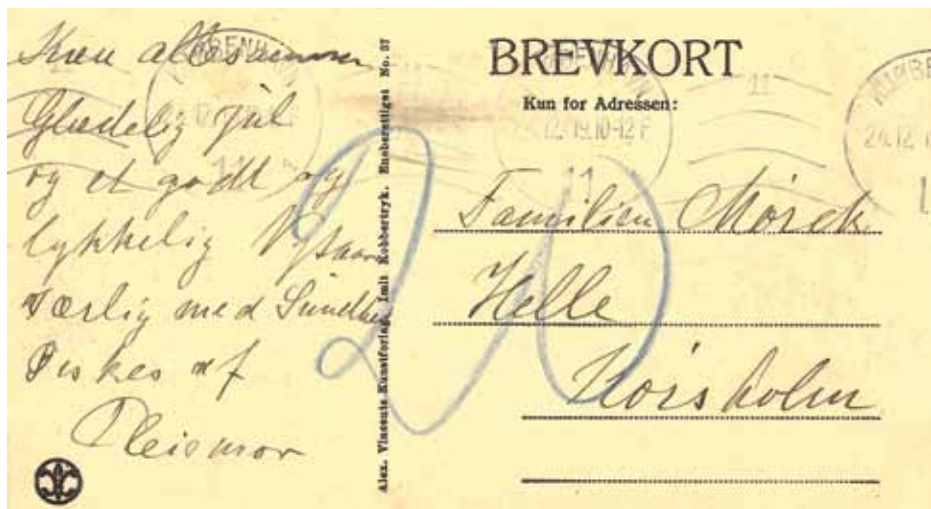 Kære allesammen
Glædelig Jul
og et godt og
lykkelig Nytaar
særlig med Sundhed
Ønskes af
Pleiemor
Alex. Vincents Kunstforlag. Imit Kobbertryk. Eneberettiget No. 37
BREVKORT
Kun for Adressen:
24.12.19.10-12 F
11
Familien Mørck
Helle
Korsholm
20
KJØBENH
11
24.12